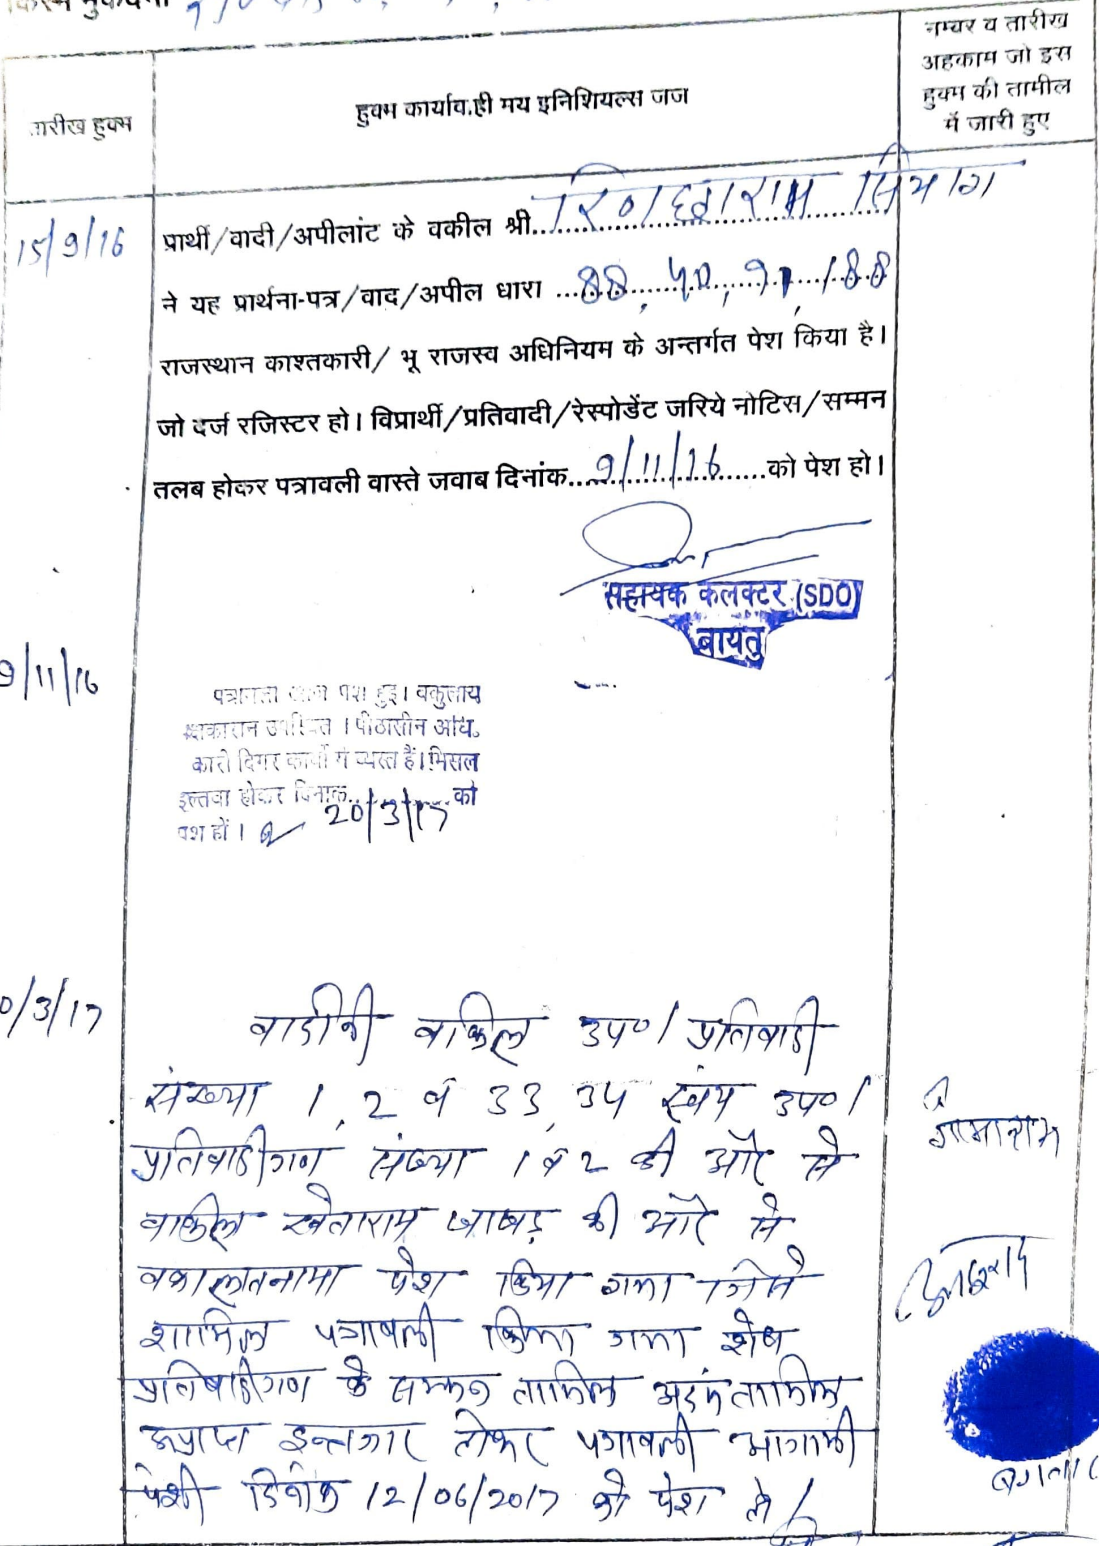 किस्म मुकदमा
तारीख हुक्म
हुक्म कार्यावाही मय इनिशियल्स जज
नम्बर व तारीख
अहकाम जो इस
हुक्म की तामील
में जारी हुए
15/9/16
प्रार्थी/वादी/अपीलांट के वकील श्री.. सियाग
ने यह प्रार्थना-पत्र/वाद/अपील धारा ..88, 40, 91, 188
राजस्थान काश्तकारी/ भू राजस्व अधिनियम के अन्तर्गत पेश किया है।
जो दर्ज रजिस्टर हो। विप्रार्थी/प्रतिवादी/रेस्पोडेंट जरिये नोटिस/सम्मन
तलब होकर पत्रावली वास्ते जवाब दिनांक..9/11/16......को पेश हो।
सहायक कलक्टर (SDO)
बायतु
9/11/16
पत्रावली पेश हुइ। वकुलाय
उपस्थित । पीठासीन अधि.
कारी दिगर कार्यो में व्यस्त हैं। मिसल
इल्तवा होकर दिनांक.. 20/3/17 को
पेश हों ।
0/3/17
वादीनी वकिल उप०। प्रतिवादी
संख्या 1, 2 व 33, 34 स्वंय उप०।
प्रतिवादीगण संख्या 1 व 2 की ओर से
वकिल खेताराम जाखड़ की ओर से
वकालतनामा पेश किया गया जिसे
शामिल पत्रावली किया गया शेष
प्रतिवादीगण के सम्मन तामिल अदम तामिल
इन्तजार होकर पत्रावली आगामी
पेशी दिनांक 12/06/2017 को पेश हो।
गोमाराम